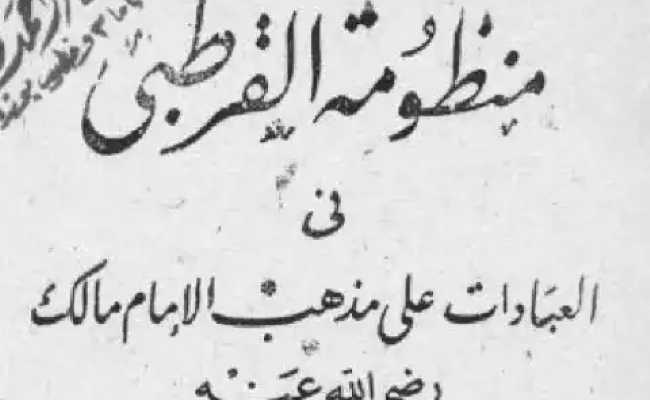 منظومة القرطبى
فى
العبادات على مذهب الإمام مالك
رضى الله عنه